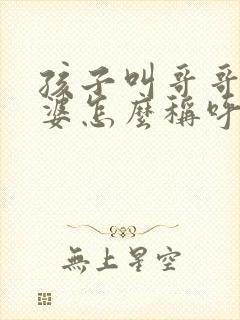 孩子叫哥哥
婆怎麼稱呼
無上星空